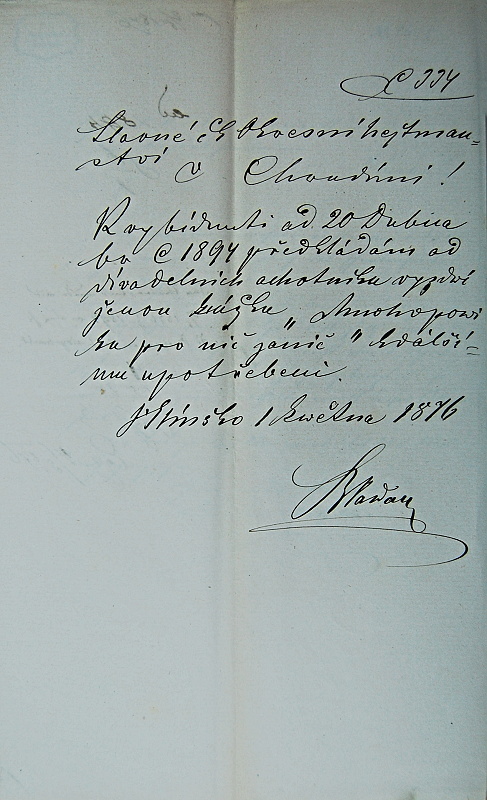 C 334
Slavné ck Okresní hejtman-
ství
v Chrudimi!
K vybídnutí od 20 Dubna
br C 1894 předkládám od
divadelních ochotníku vyzdvi
ženou knížku „Mnoho povi
ku pro nič zanič" kdálší-
mu upotřebení.
Hlinsko 1 Května 1876